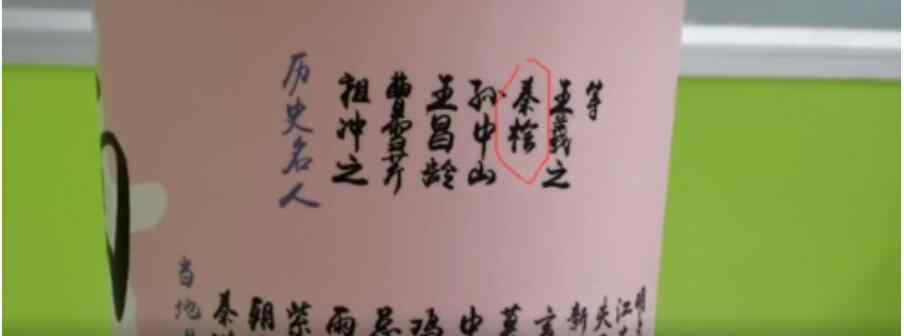 历史名人
祖冲之
曹雪芹
王昌龄
孙中山
秦桧
王羲之
等
当地
秦
朝
紫
雨
总
鸡
中
莫
玄
新
夫
江
明